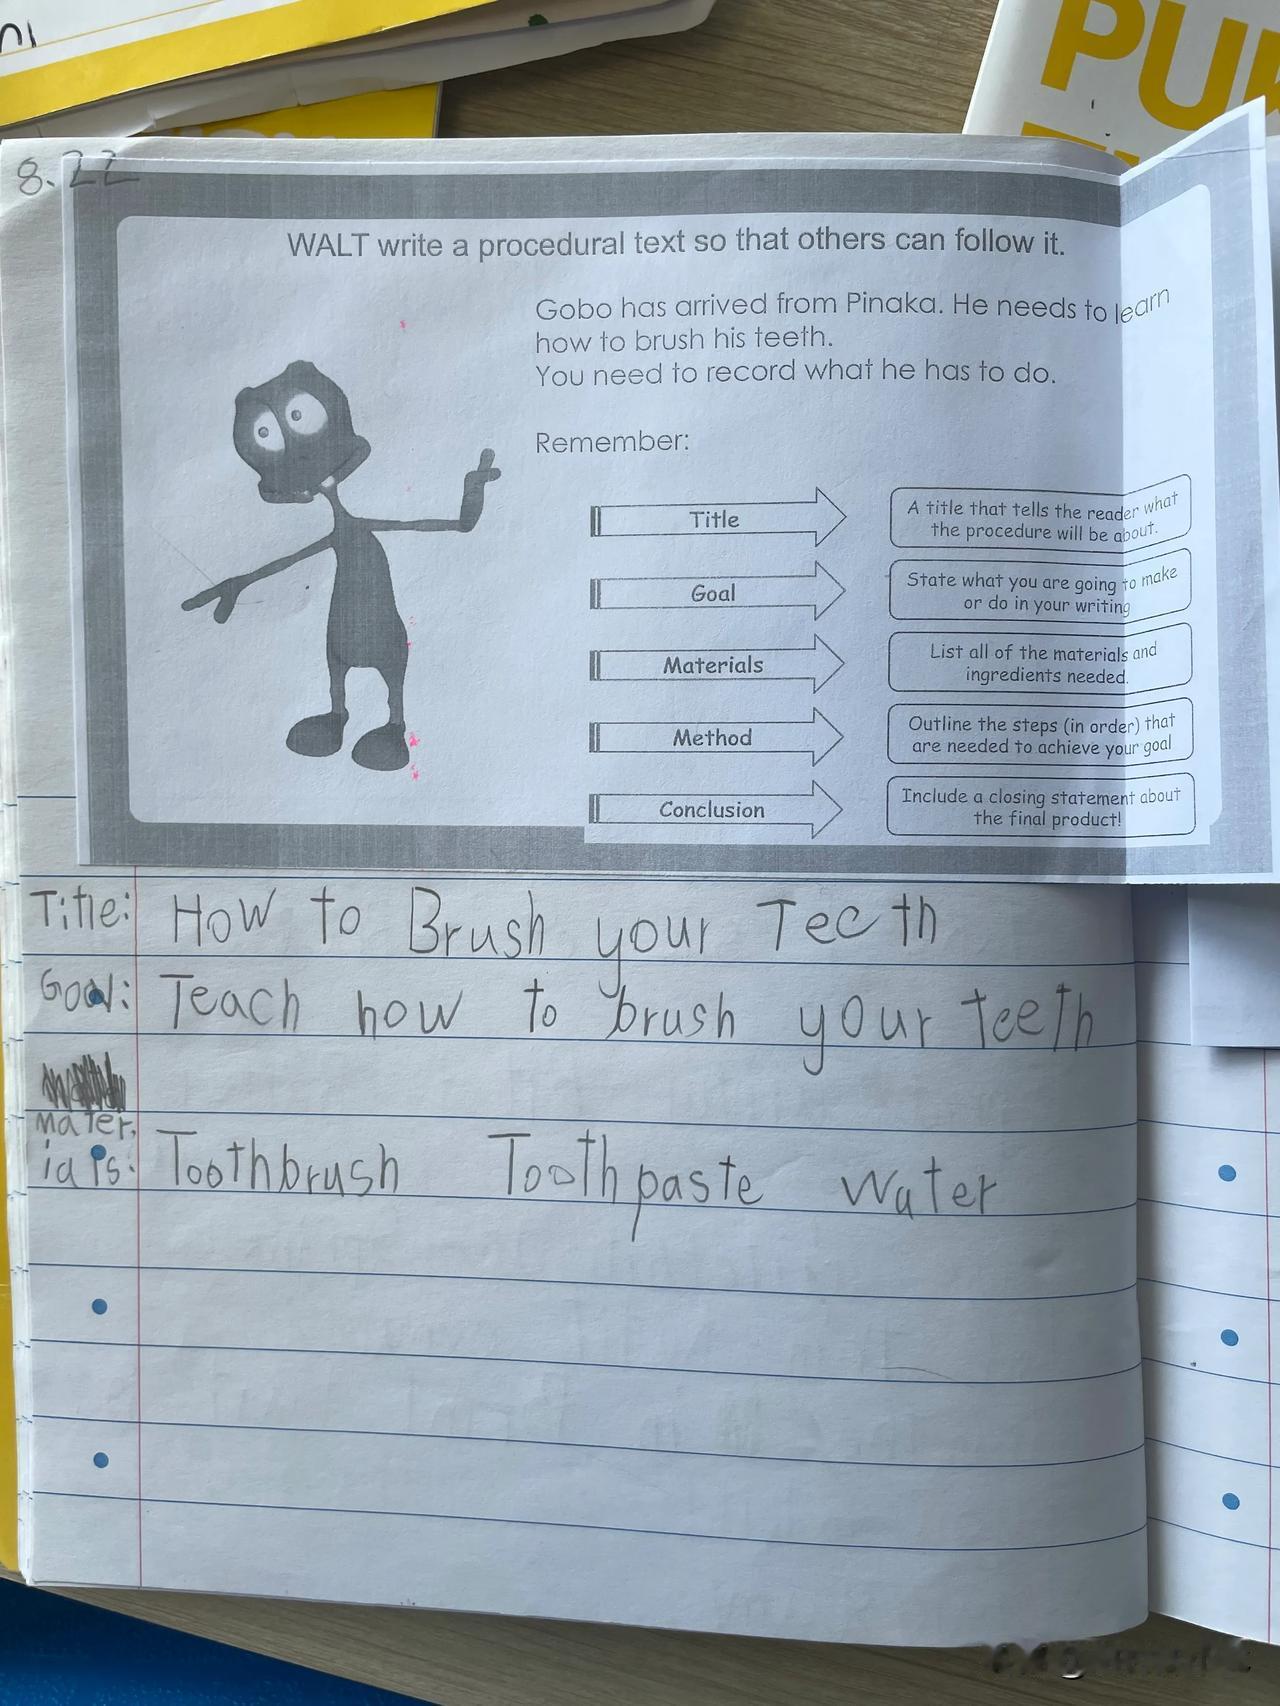 PU
8.22
WALT write a procedural text so that others can follow it.
Gobo has arrived from Pinaka. He needs to learn
how to brush his teeth.
You need to record what he has to do.
Remember:
Title
A title that tells the reader what
the procedure will be about.
Goal
State what you are going to make
or do in your writing
Materials
List all of the materials and
ingredients needed.
Method
Outline the steps (in order) that
are needed to achieve your goal
Conclusion
Include a closing statement about
the final product!
Title: How to Brush your Teeth
Goal: Teach how to brush your teeth
Mater.
ials: Toothbrush Toothpaste water